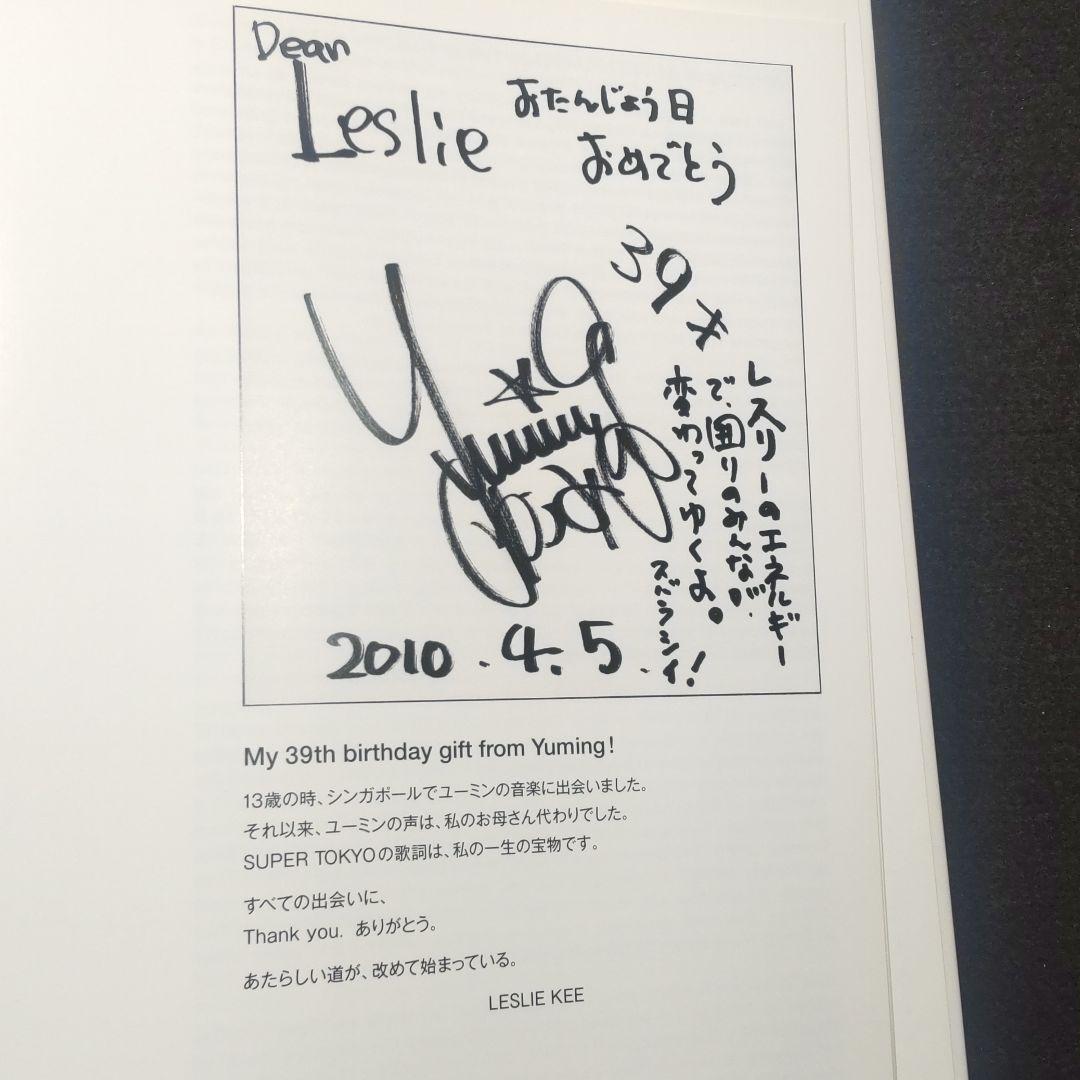 Dear
Leslie
おたんじょう日
おめでとう
39才
レスリーのエネルギー
で、囲りのみんなが、
変わってゆくよ。
ズバラシイ!
Yuming
2010.4.5.
My 39th birthday gift from Yuming!
13歳の時、シンガポールでユーミンの音楽に出会いました。
それ以来、ユーミンの声は、私のお母さん代わりでした。
SUPER TOKYOの歌詞は、私の一生の宝物です。
すべての出会いに、
Thank you. ありがとう。
あたらしい道が、改めて始まっている。
LESLIE KEE